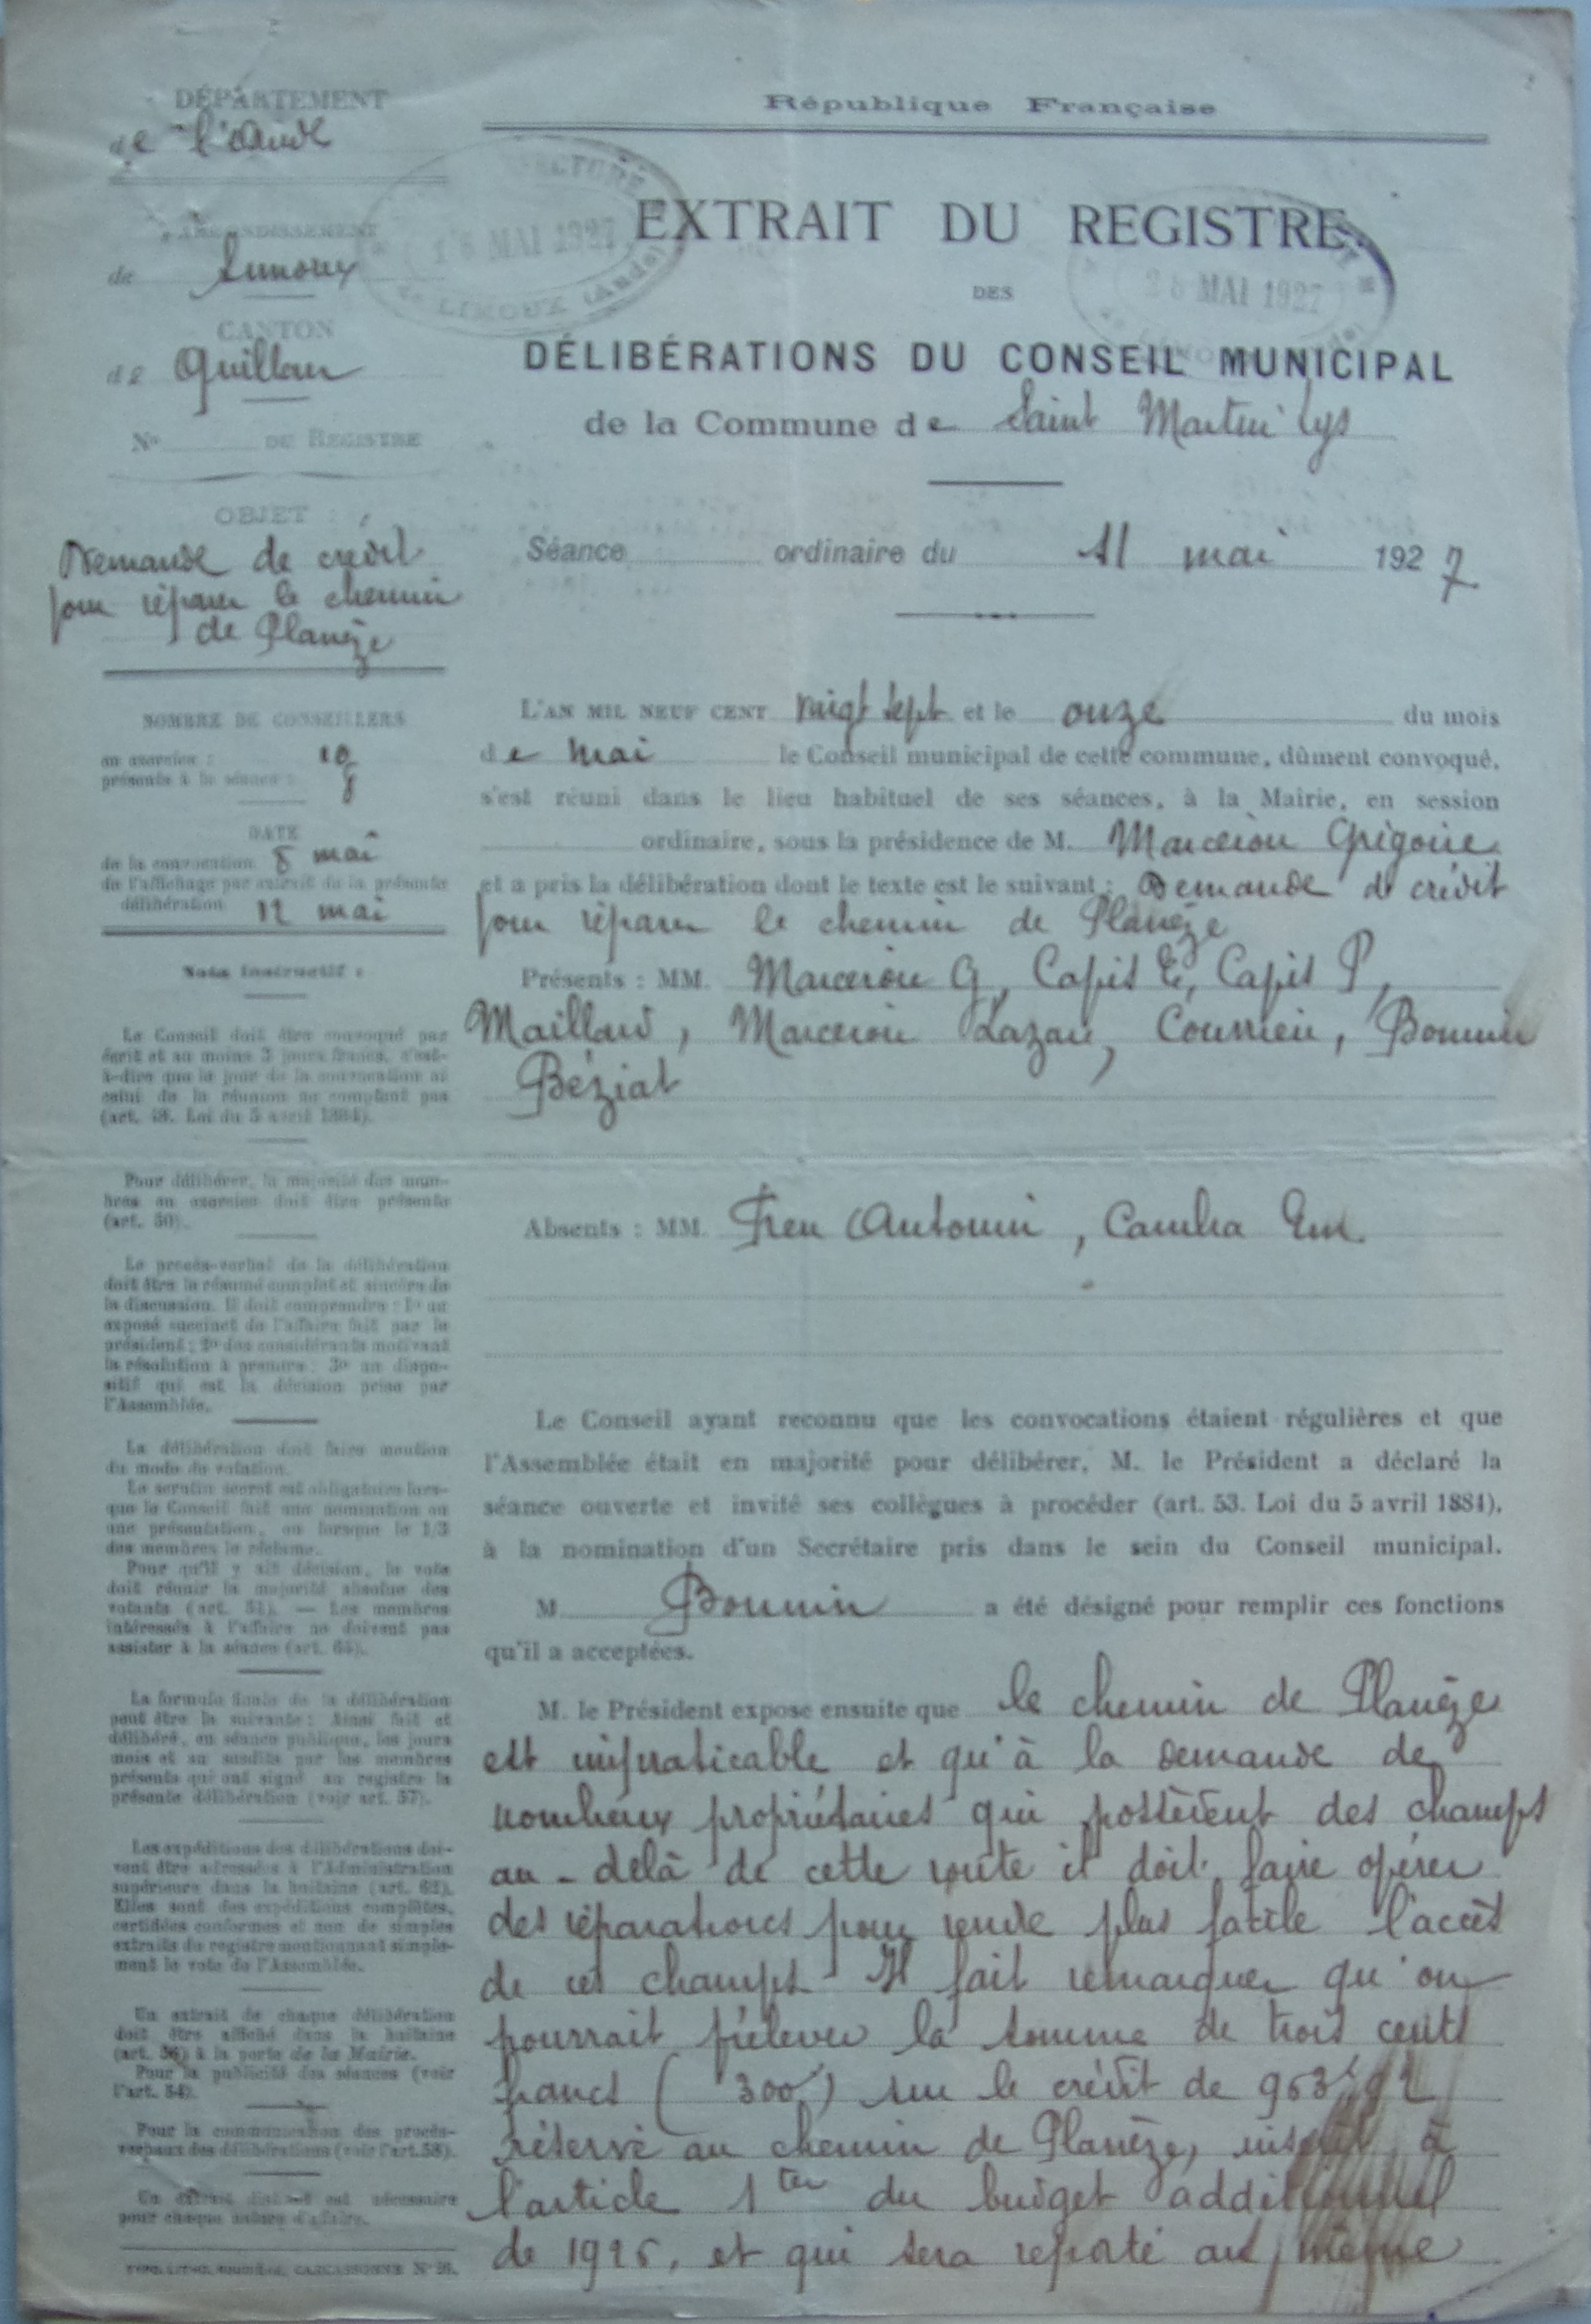 DÉPARTEMENT
de l'Aude
ARRONDISSEMENT
de Limoux
CANTON
de Quillan
No DU REGISTRE
OBJET :
Demande de crédit
pour réparer le chemin
de Planèze
NOMBRE DE CONSEILLERS
en exercice : 10
présents à la séance : 8
DATE
de la convocation 8 mai
de l'affichage par extrait de la présente
délibération 12 mai
Nota Instructif :
Le Conseil doit être convoqué par
écrit et au moins 3 jours francs, c'est-
à-dire que le jour de la convocation ni
celui de la réunion ne comptent pas
(art. 48. Loi du 5 avril 1884).
Pour délibérer, la majorité des mem-
bres en exercice doit être présente
(art. 50).
Le procès-verbal de la délibération
doit être le résumé complet et sincère de
la discussion. Il doit comprendre : 1o un
exposé succinct de l'affaire fait par le
président ; 2o des considérants motivant
la résolution à prendre ; 3o un dispo-
sitif qui est la décision prise par
l'Assemblée.
La délibération doit faire mention
du mode de votation.
Le scrutin secret est obligatoire lors-
que le Conseil fait une nomination ou
une présentation, ou lorsque le 1/3
des membres le réclame.
Pour qu'il y ait décision, le vote
doit réunir la majorité absolue des
votants (art. 51). — Les membres
intéressés à l'affaire ne doivent pas
assister à la séance (art. 64).
La formule finale de la délibération
peut être la suivante : Ainsi fait et
délibéré, en séance publique, les jours
mois et an susdits par les membres
présents qui ont signé au registre la
présente délibération (voir art. 57).
Les expéditions des délibérations doi-
vent être adressées à l'Administration
supérieure dans la huitaine (art. 62).
Elles sont des expéditions complètes,
certifiées conformes et non de simples
extraits du registre mentionnant simple-
ment le vote de l'Assemblée.
Un extrait de chaque délibération
doit être affiché dans la huitaine
(art. 56) à la porte de la Mairie.
Pour la publicité des séances (voir
l'art. 54).
Pour la communication des procès-
verbaux des délibérations (voir l'art. 58).
Un extrait distinct est nécessaire
pour chaque nature d'affaire.
CARCASSONNE No 26.
République Française
18 MAI 1927
de LIMOUX (Aude)
28 MAI 1927
EXTRAIT DU REGISTRE
DES
DÉLIBÉRATIONS DU CONSEIL MUNICIPAL
de la Commune de Saint Martin Lys
Séance ordinaire du 11 mai 1927
L'AN MIL NEUF CENT vingt sept et le onze du mois
de mai le Conseil municipal de cette commune, dûment convoqué,
s'est réuni dans le lieu habituel de ses séances, à la Mairie, en session
ordinaire, sous la présidence de M. Marcerou Grégoire
et a pris la délibération dont le texte est le suivant : Demande de crédit
pour réparer le chemin de Planèze
Présents : MM. Marcerou G, Capis E, Capis P,
Maillard, Marcerou Lazare, Bonnin
Béziat
Absents : MM. Antonin, Em.
Le Conseil ayant reconnu que les convocations étaient régulières et que
l'Assemblée était en majorité pour délibérer, M. le Président a déclaré la
séance ouverte et invité ses collègues à procéder (art. 53. Loi du 5 avril 1884),
à la nomination d'un Secrétaire pris dans le sein du Conseil municipal.
M Bonnin a été désigné pour remplir ces fonctions
qu'il a acceptées.
M. le Président expose ensuite que le chemin de Planèze
est impraticable et qu'à la demande de
nombreux propriétaires qui possèdent des champs
au-delà de cette route il doit faire opérer
des réparations pour rendre plus facile l'accès
de ces champs. Il fait remarquer qu'on
pourrait prélever la somme de trois cents
francs (300f) sur le crédit de 953f,92
réservé au chemin de Planèze, inscrit à
l'article 1ter du budget additionnel
de 1926, et qui sera reporté au même